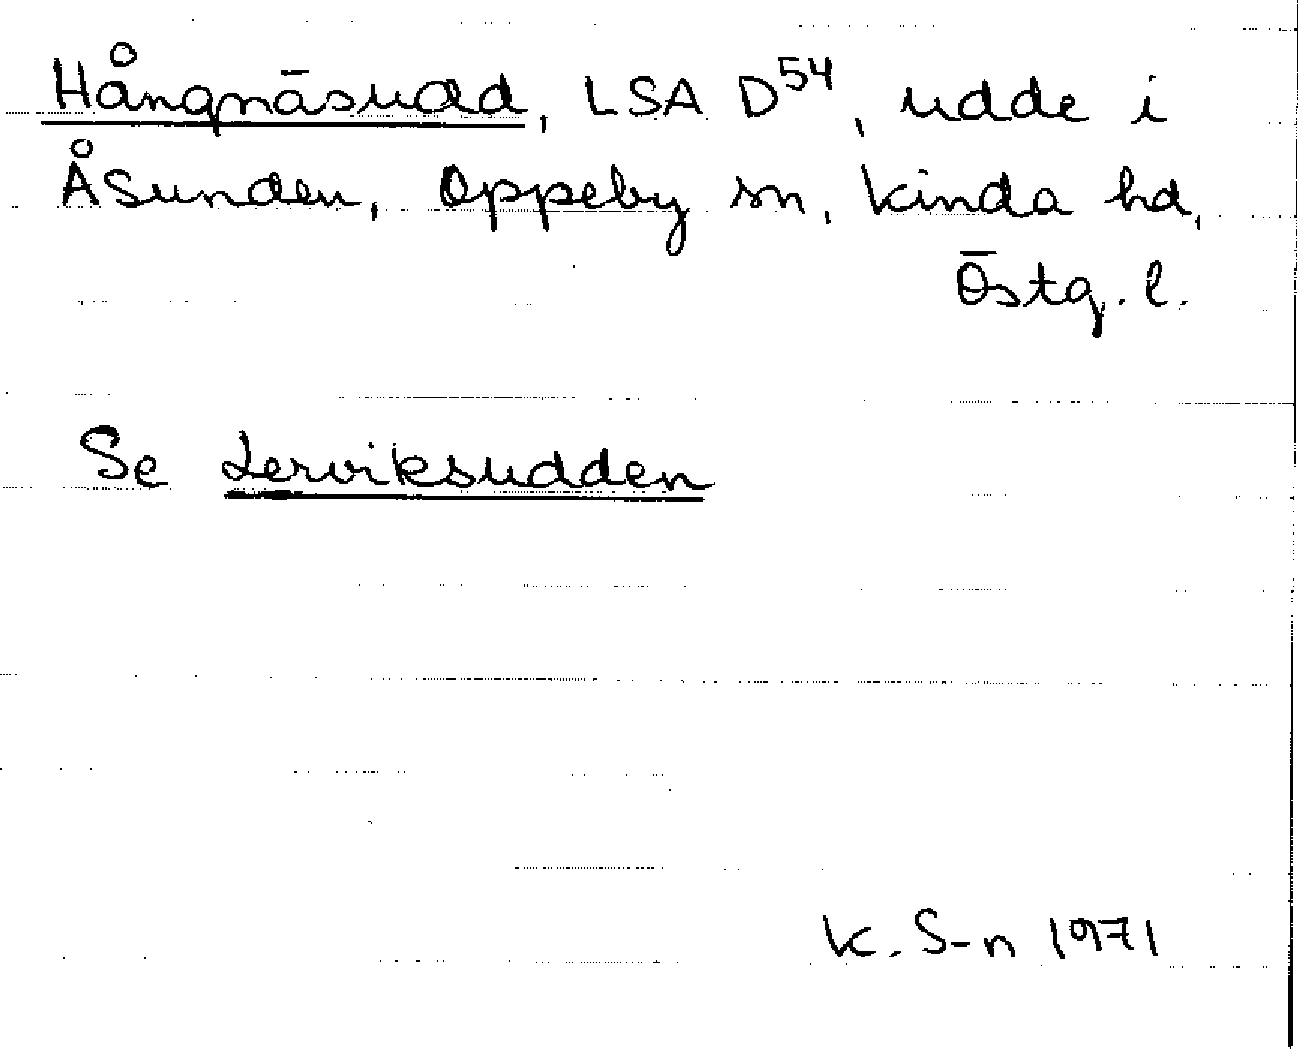 Hångnäsudd, LSA D54, udde i
Åsunden, Oppeby sn, Kinda hd,
Östg. l.
Se Lerviksudden
K. S-n 1971